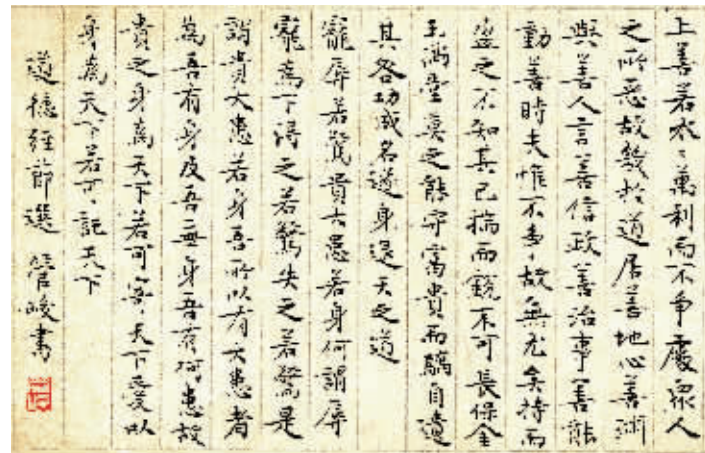 上善若水〻萬利而不争處衆人
之所惡故幾於道居善地心善渊
與善人言善信政善治事善能
動善時夫惟不争故無尤矣持而
盈之不知其已揣而銳不可長保金
玉滿堂莫之能守富貴而驕自遺
其各功成名遂身退天之道
寵辱若驚貴大患若身何謂辱
寵為下得之若驚失之若驚是
謂貴大患若身吾所以有大患者
為吾有身及吾無身吾有何患故
貴之身為天下若可寄天下愛以
身為天下若可託天下
道德經節選 管峻書